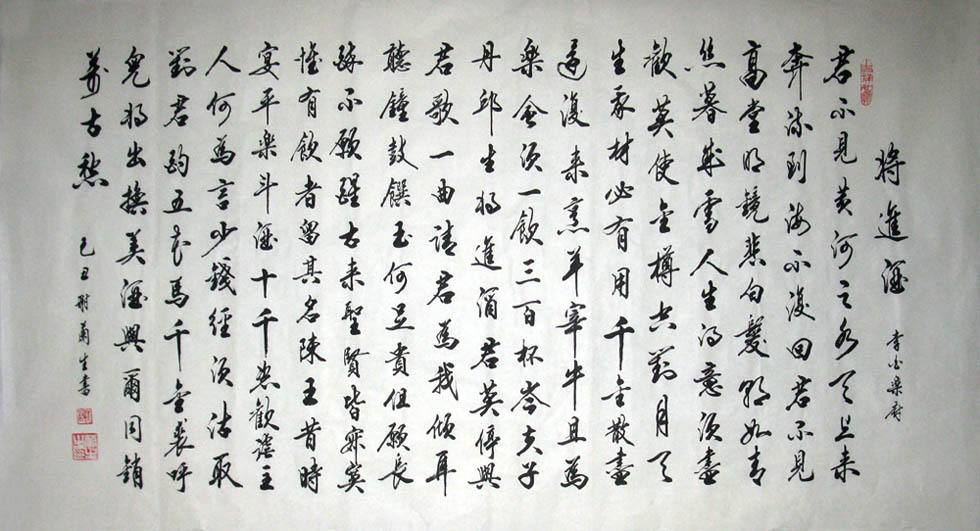 將進酒 李白樂府
君不見黃河之水天上來
奔流到海不復回君不見
高堂明鏡悲白髮朝如青
絲暮成雪人生得意須盡
歡莫使金樽空對月天
生我材必有用千金散盡
還復來烹羊宰牛且為
樂會須一飲三百杯岑夫子
丹邱生將進酒君莫停與
君歌一曲請君為我傾耳
聽鐘鼓饌玉何足貴但願長
醉不願醒古來聖賢皆寂寞
惟有飲者留其名陳王昔時
宴平樂斗酒十千恣歡謔主
人何為言少錢經須沽取
對君酌五花馬千金裘呼
兒將出換美酒與爾同銷
萬古愁 己丑 生書